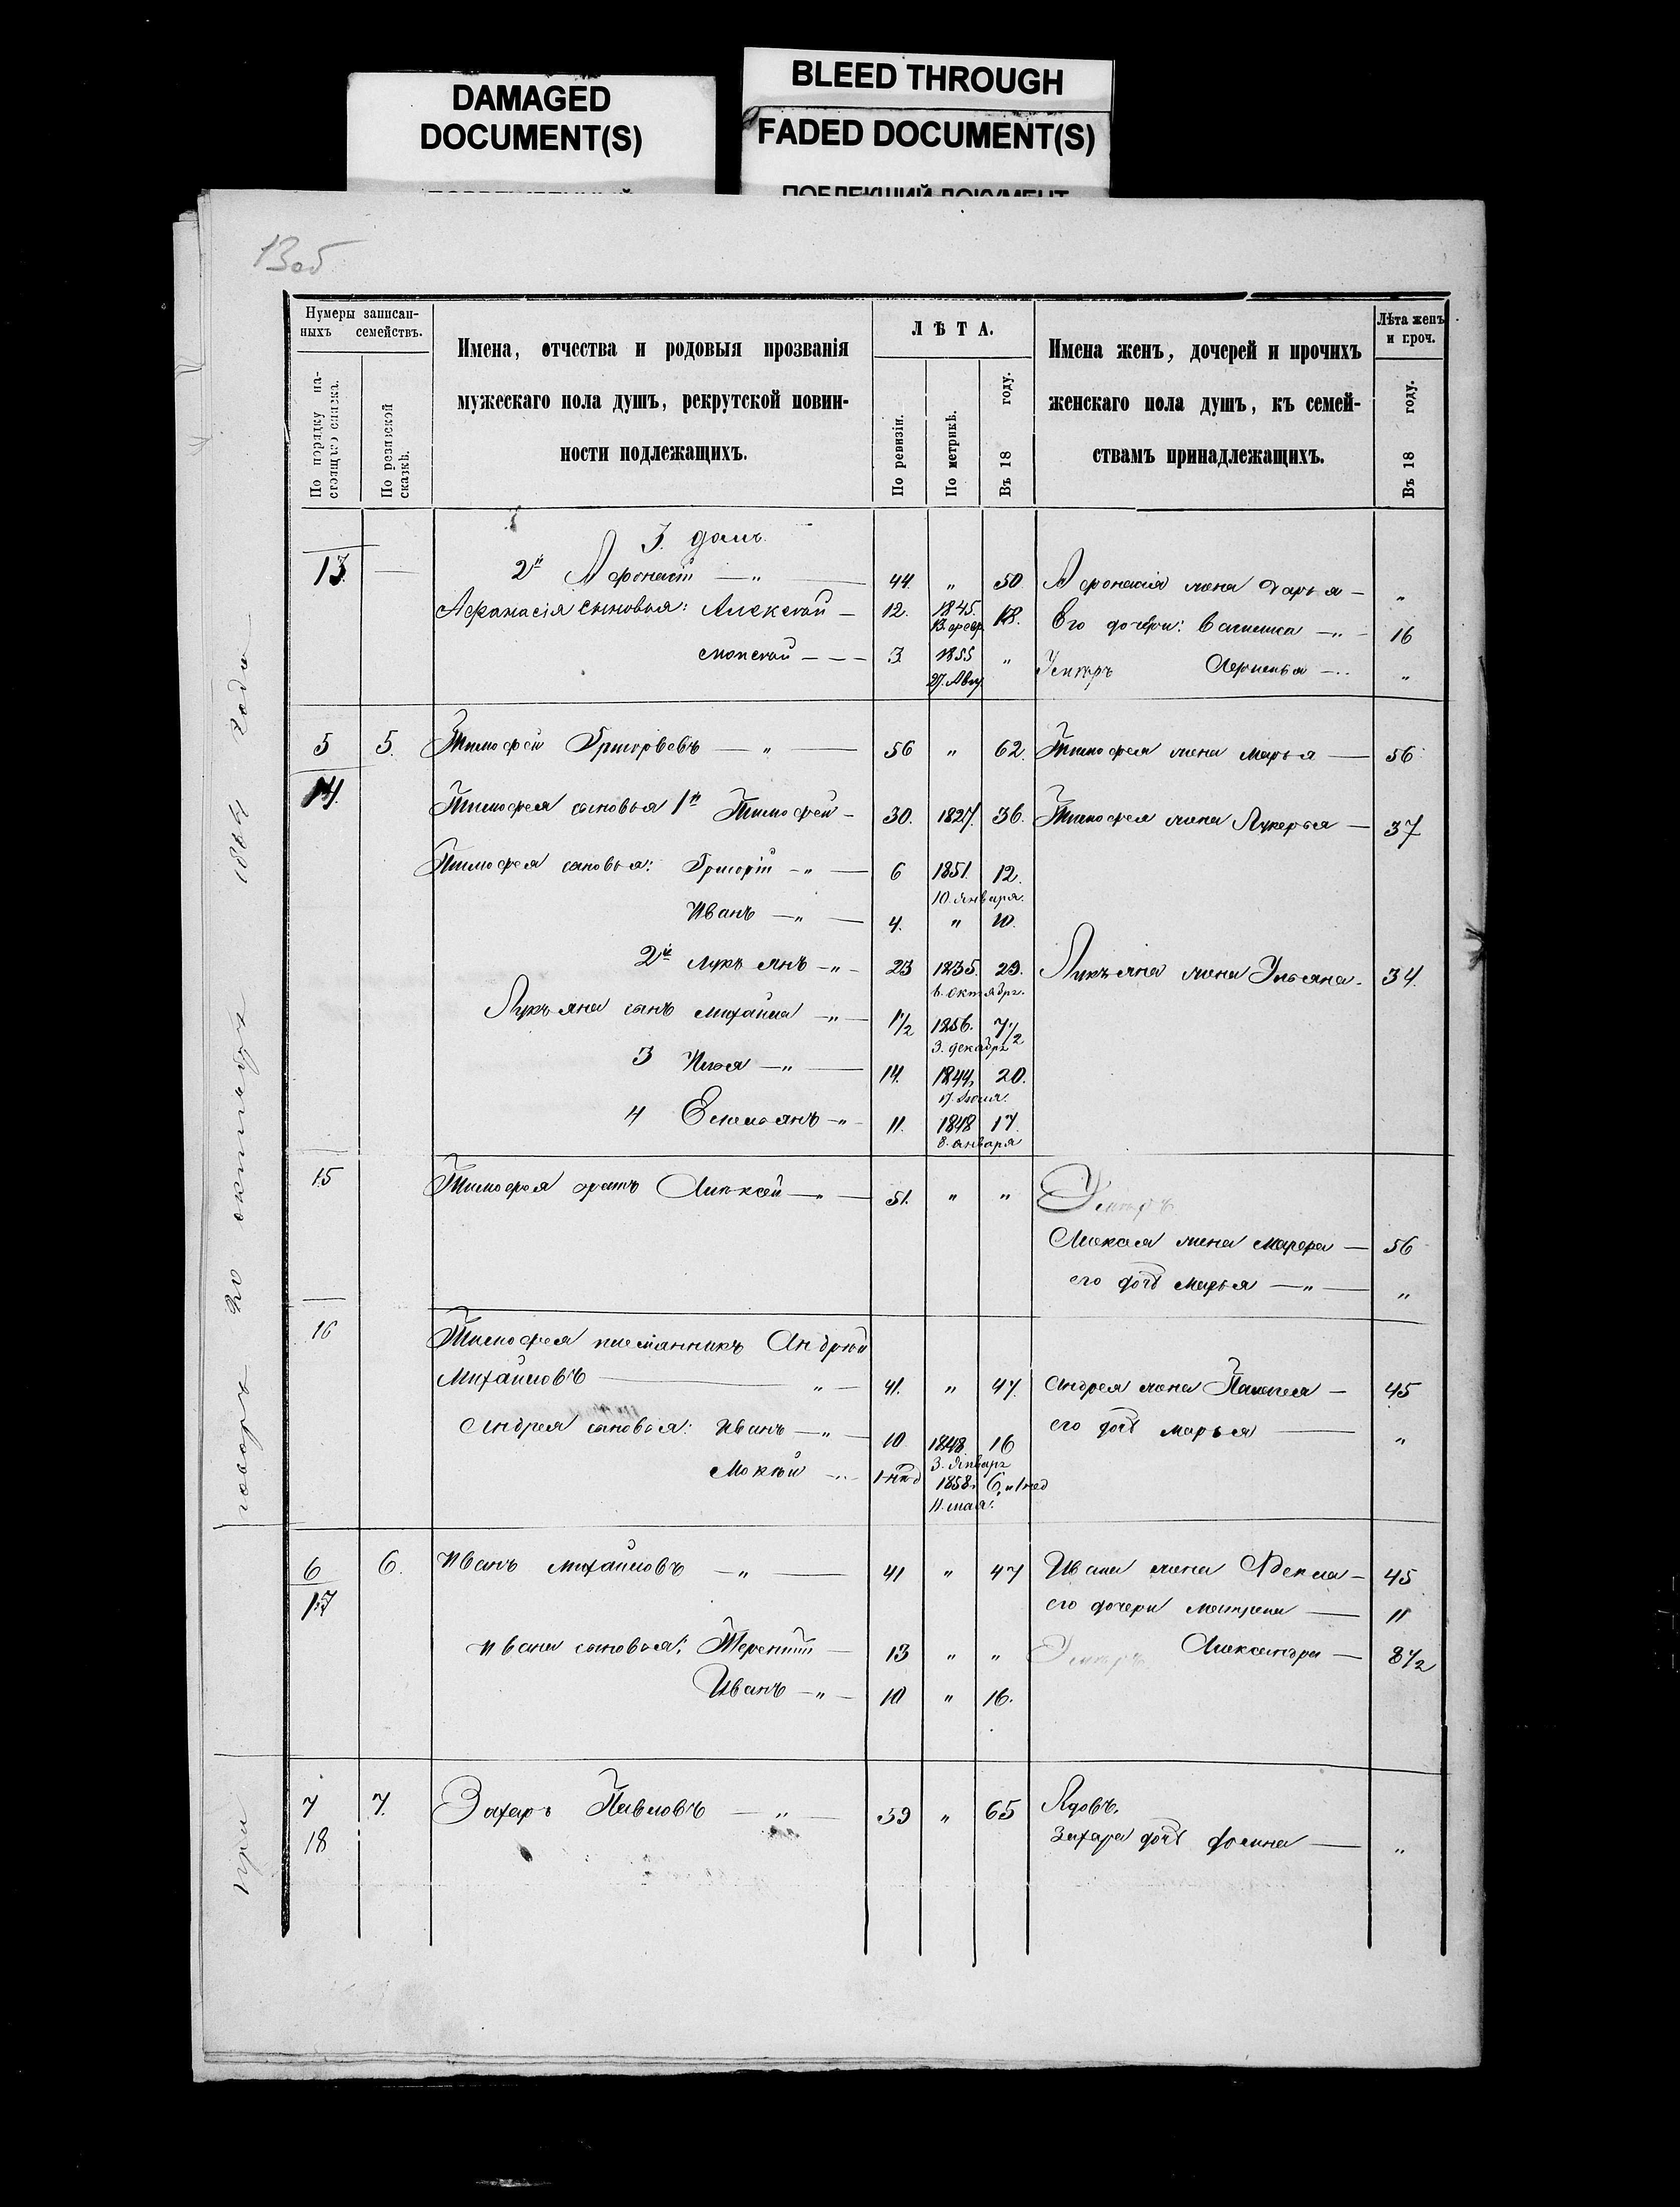 DAMAGED
DOCUMENT(S)
BLEED THROUGH
FADED DOCUMENT(S)
ПОБЛЕКШИЙ ДОКУМЕНТ
13об
Нумеры записан-
ныхъ семействъ.
По порядку на-
стоящаго списка.
По ревизской
сказкѣ.
Имена, отчества и родовыя прозванія
мужескаго пола душъ, рекрутской повин-
ности подлежащихъ.
ЛѢТА.
По ревизіи.
По метрикѣ.
Въ 18 году.
Имена женъ, дочерей и прочихъ
женскаго пола душъ, къ семей-
ствамъ принадлежащихъ.
Лѣта женъ
и проч.
Въ 18 году.
3. домъ.
13. — 2й Афонасій — „ — 44. „ 50. Афонасія жена Дарья — „
Афанасія сыновья: Алексѣй — 12. 1845. 18. Его дочери: — „ — 16
13. февр.
Моисей — 3 1855 „ Умеръ —„
27. Авгу.
5 5. Тимофей Григорьевъ — „ — 56 „ 62. Тимофея жена Марья — 56
14. Тимофея сыновья 1й Тимофей — 30. 1827. 36. Тимофея жена Лукерья — 37
Тимофея сыновья: Григорій — „ — 6 1851. 12.
10. января.
Иванъ — „ — 4. „ 10.
2й Лукьянъ — „ — 23 1835. 29. Лукьяна жена Ульяна — 34.
6. октябрь.
Лукьяна сынъ Михайла — „ — 1 1/2 1856. 7 1/2
3. декабрь
3 Илья — „ — 14. 1844, 20.
17. Іюля.
4 Емельянъ — „ — 11. 1848 17.
8. января
15 Тимофея братъ Алексѣй — „ — 51. „ „ Умеръ.
Алексѣя жена Марфа — 56
его дочь Марья — „ — „
16 Тимофея племянникъ Андрѣй
Михайловъ — „ — 41. „ 47. Андрея жена Палагея — 45
Андрея сыновья: Иванъ — „ — 10 1848. 16 его дочь Марья — „
3. Январь
Мокѣй — „ 1 нед 1858. 6. и 1 нед
11. мая.
6 6. Иванъ Михайловъ — „ — 41 „ 47 Ивана жена Фекла — 45
17 его дочери Матрена — 11
Ивана сыновья: Терентій — 13 „ „ Умеръ Александра — 8 1/2
Иванъ — „ — 10 „ 16.
7 7. Захаръ Павловъ — „ — 59 „ 65 Вдовъ.
18 Захара дочь Фомина — „
при говоръ 20 октября 1864 года